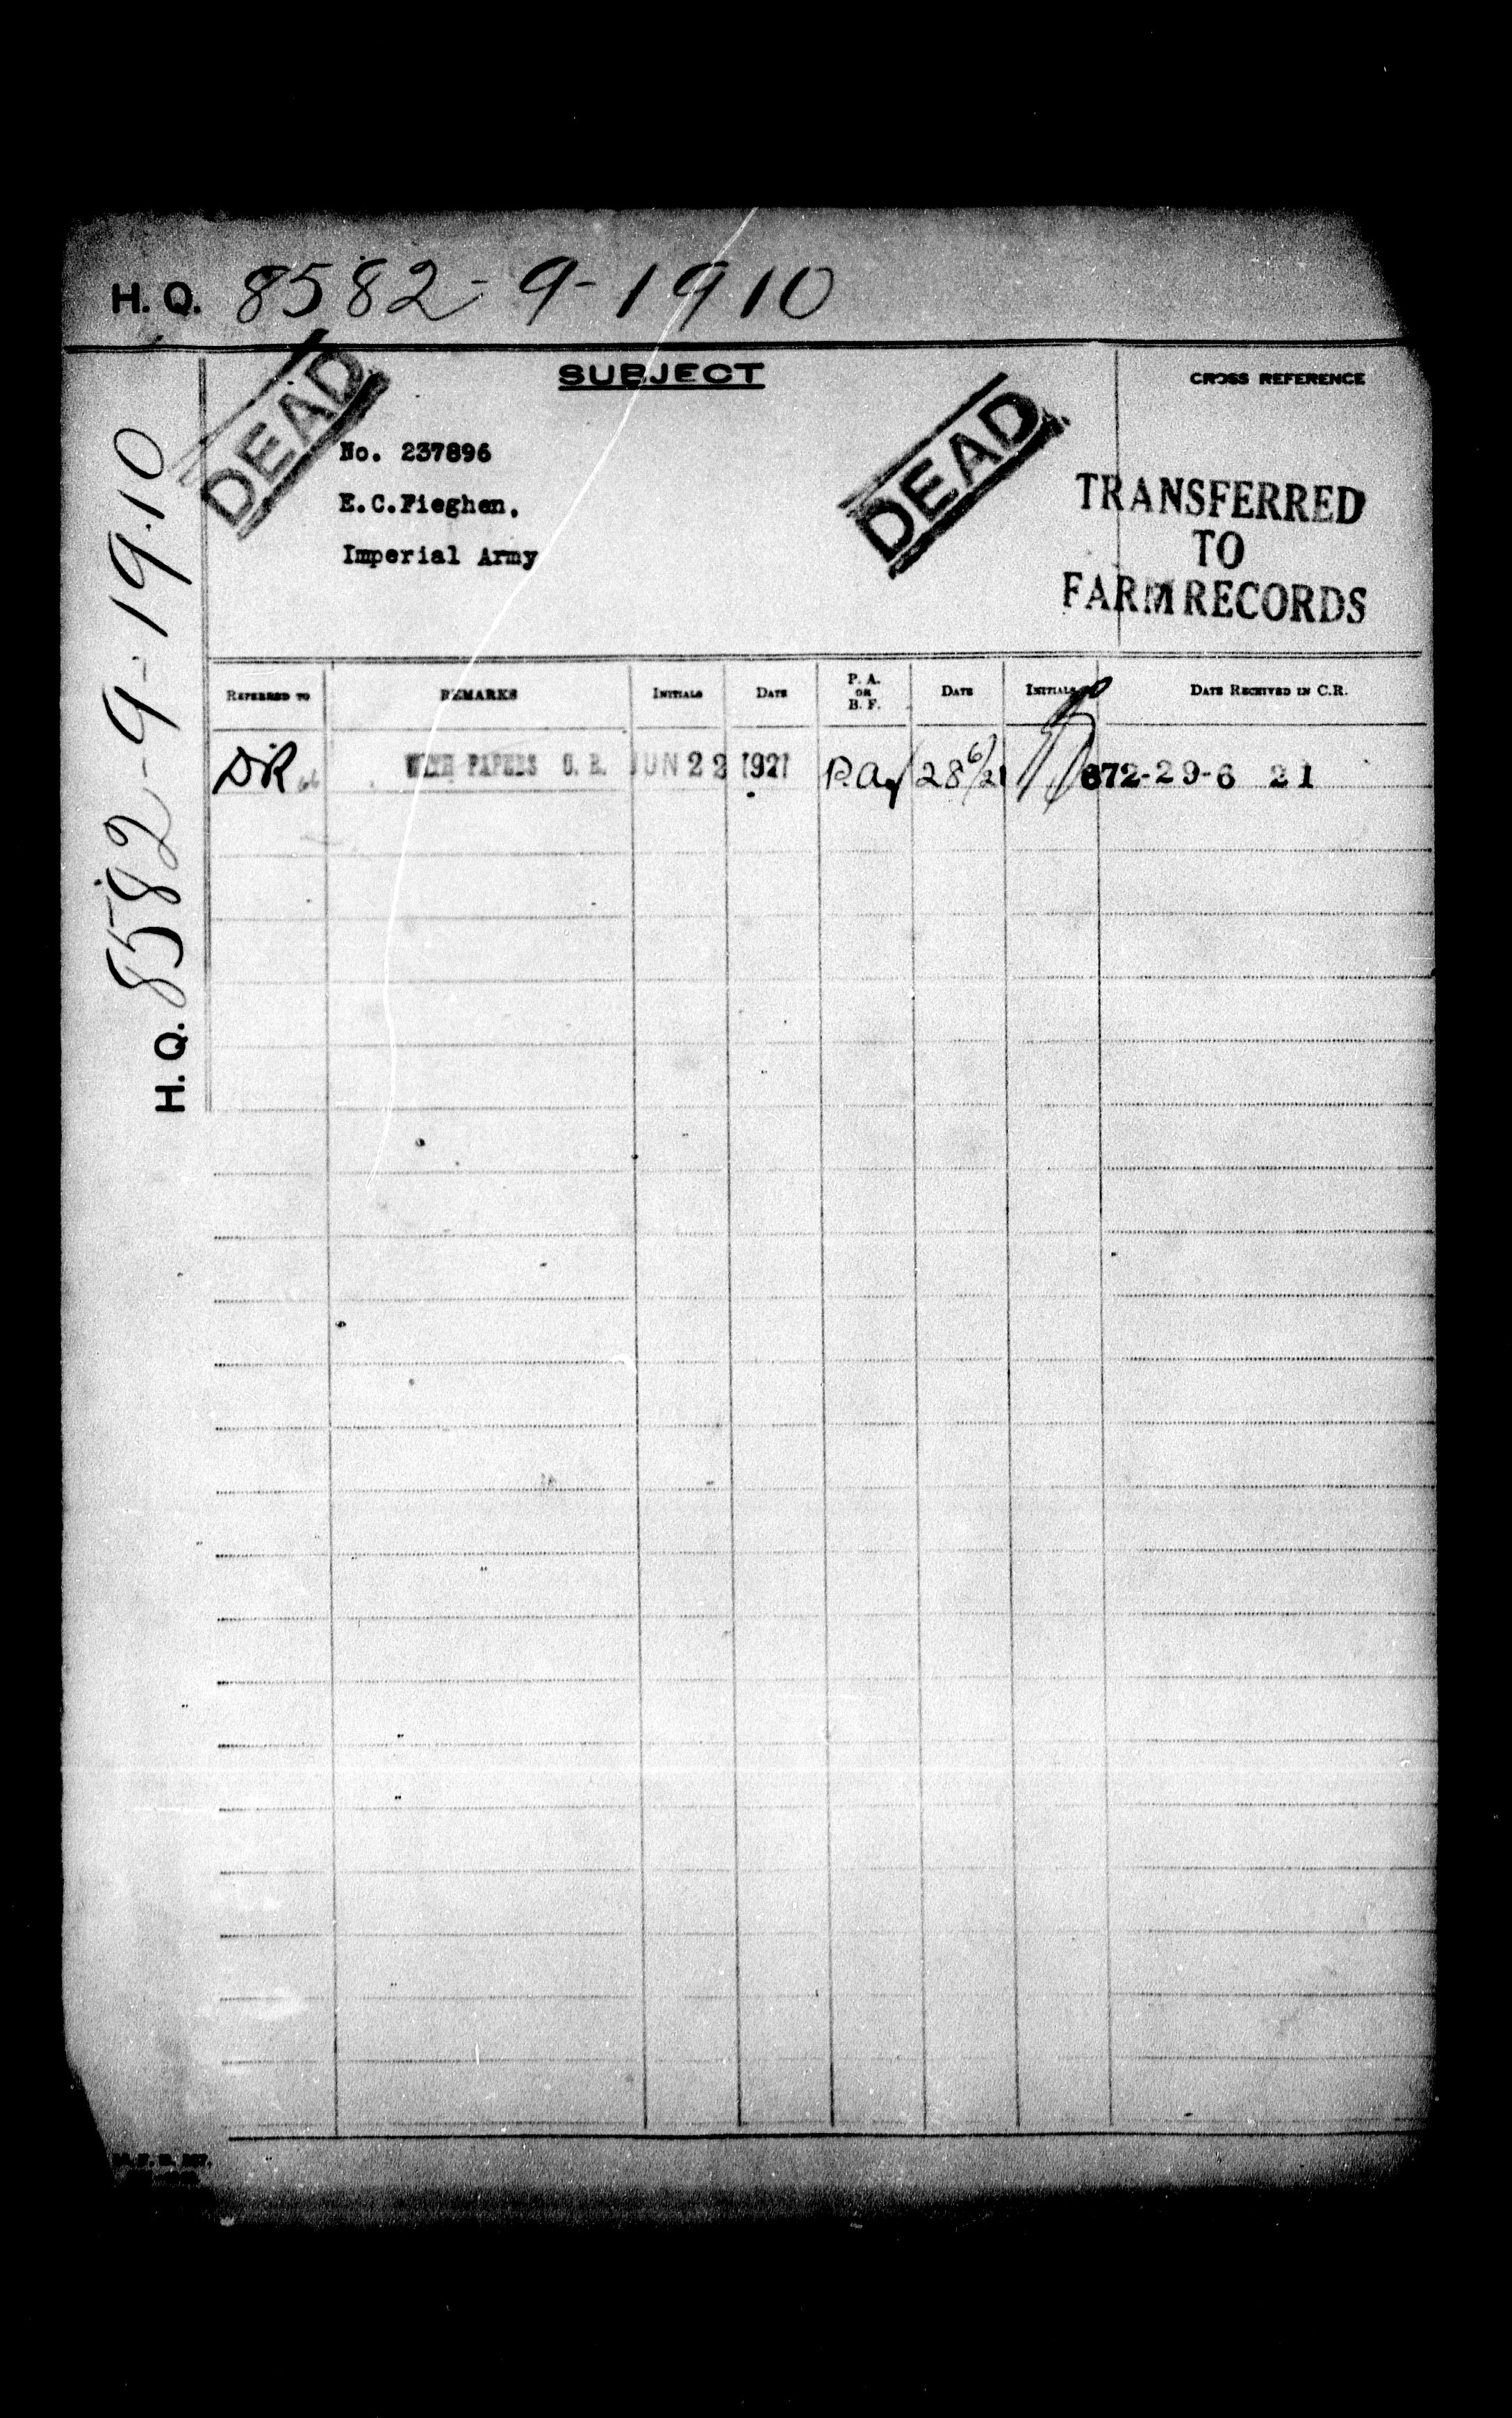 H. Q. 8582-9-1910
SUBJECT
CROSS REFERENCE
DEAD
DEAD
No. 237896
E.C.Fieghen.
Imperial Army
TRANSFERRED
TO
FARM RECORDS
H. Q. 8582-9-1910
REFERRED TO REMARKS INITIALS DATE P. A. OR B. F. DATE INITIALS DATE RECEIVED IN C.R.
DR WITH PAPERS C. R. JUN 22 1921 P.A. 28/6/21 872-29-6 21